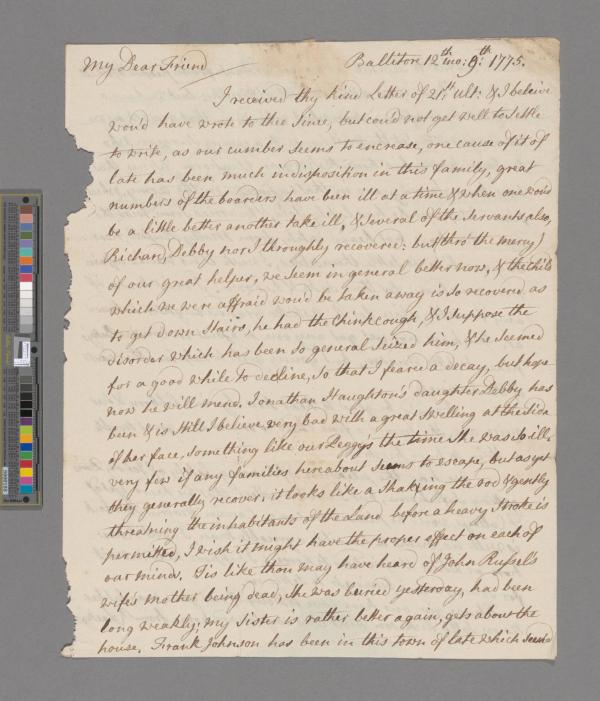 My Dear Friend
Ballitore 12th mo: 9th: 1775.
I received thy kind Letter of 21st: ult: & I beleive
wou'd have wrote to thee since, but could not get well to settle
to write, as our cumber seems to encrease, one cause of it of
late has been much indisposition in this family, great
numbers of the boarders have been ill at a time & when one wou'd
be a little better another take ill, & several of the servants also,
Richard, Debby nor I throughly recovered: but (thro' the mercy)
of our great helper, we seem in general better now, & the child
which we were affraid wou'd be taken away is so recovered as
to get down Stairs, he had the Chinkcough, & I suppose the
disorder which has been so general seized him, & he seemed
for a good while to decline, so that I feared a decay, but hope
now he will mend. Jonathan Haughton's daughter Debby has
been & is still I believe very bad with a great swelling at the side
of her face, something like our Peggy's the time she was so ill,
very few if any families hereabout seems to escape, but as yet
they generally recover, it looks like a shaking the rod & gently
threatning the inhabitants of the Land before a heavy stroke is
permitted, I wish it might have the proper effect on each of
our minds. Tis like thou may have heard of John Russel's
wife's mother being dead, she was buried yesterday, had been
long weakly; my Sister is rather better again, gets about the
house. Frank Johnson has been in this town of late which seem'd